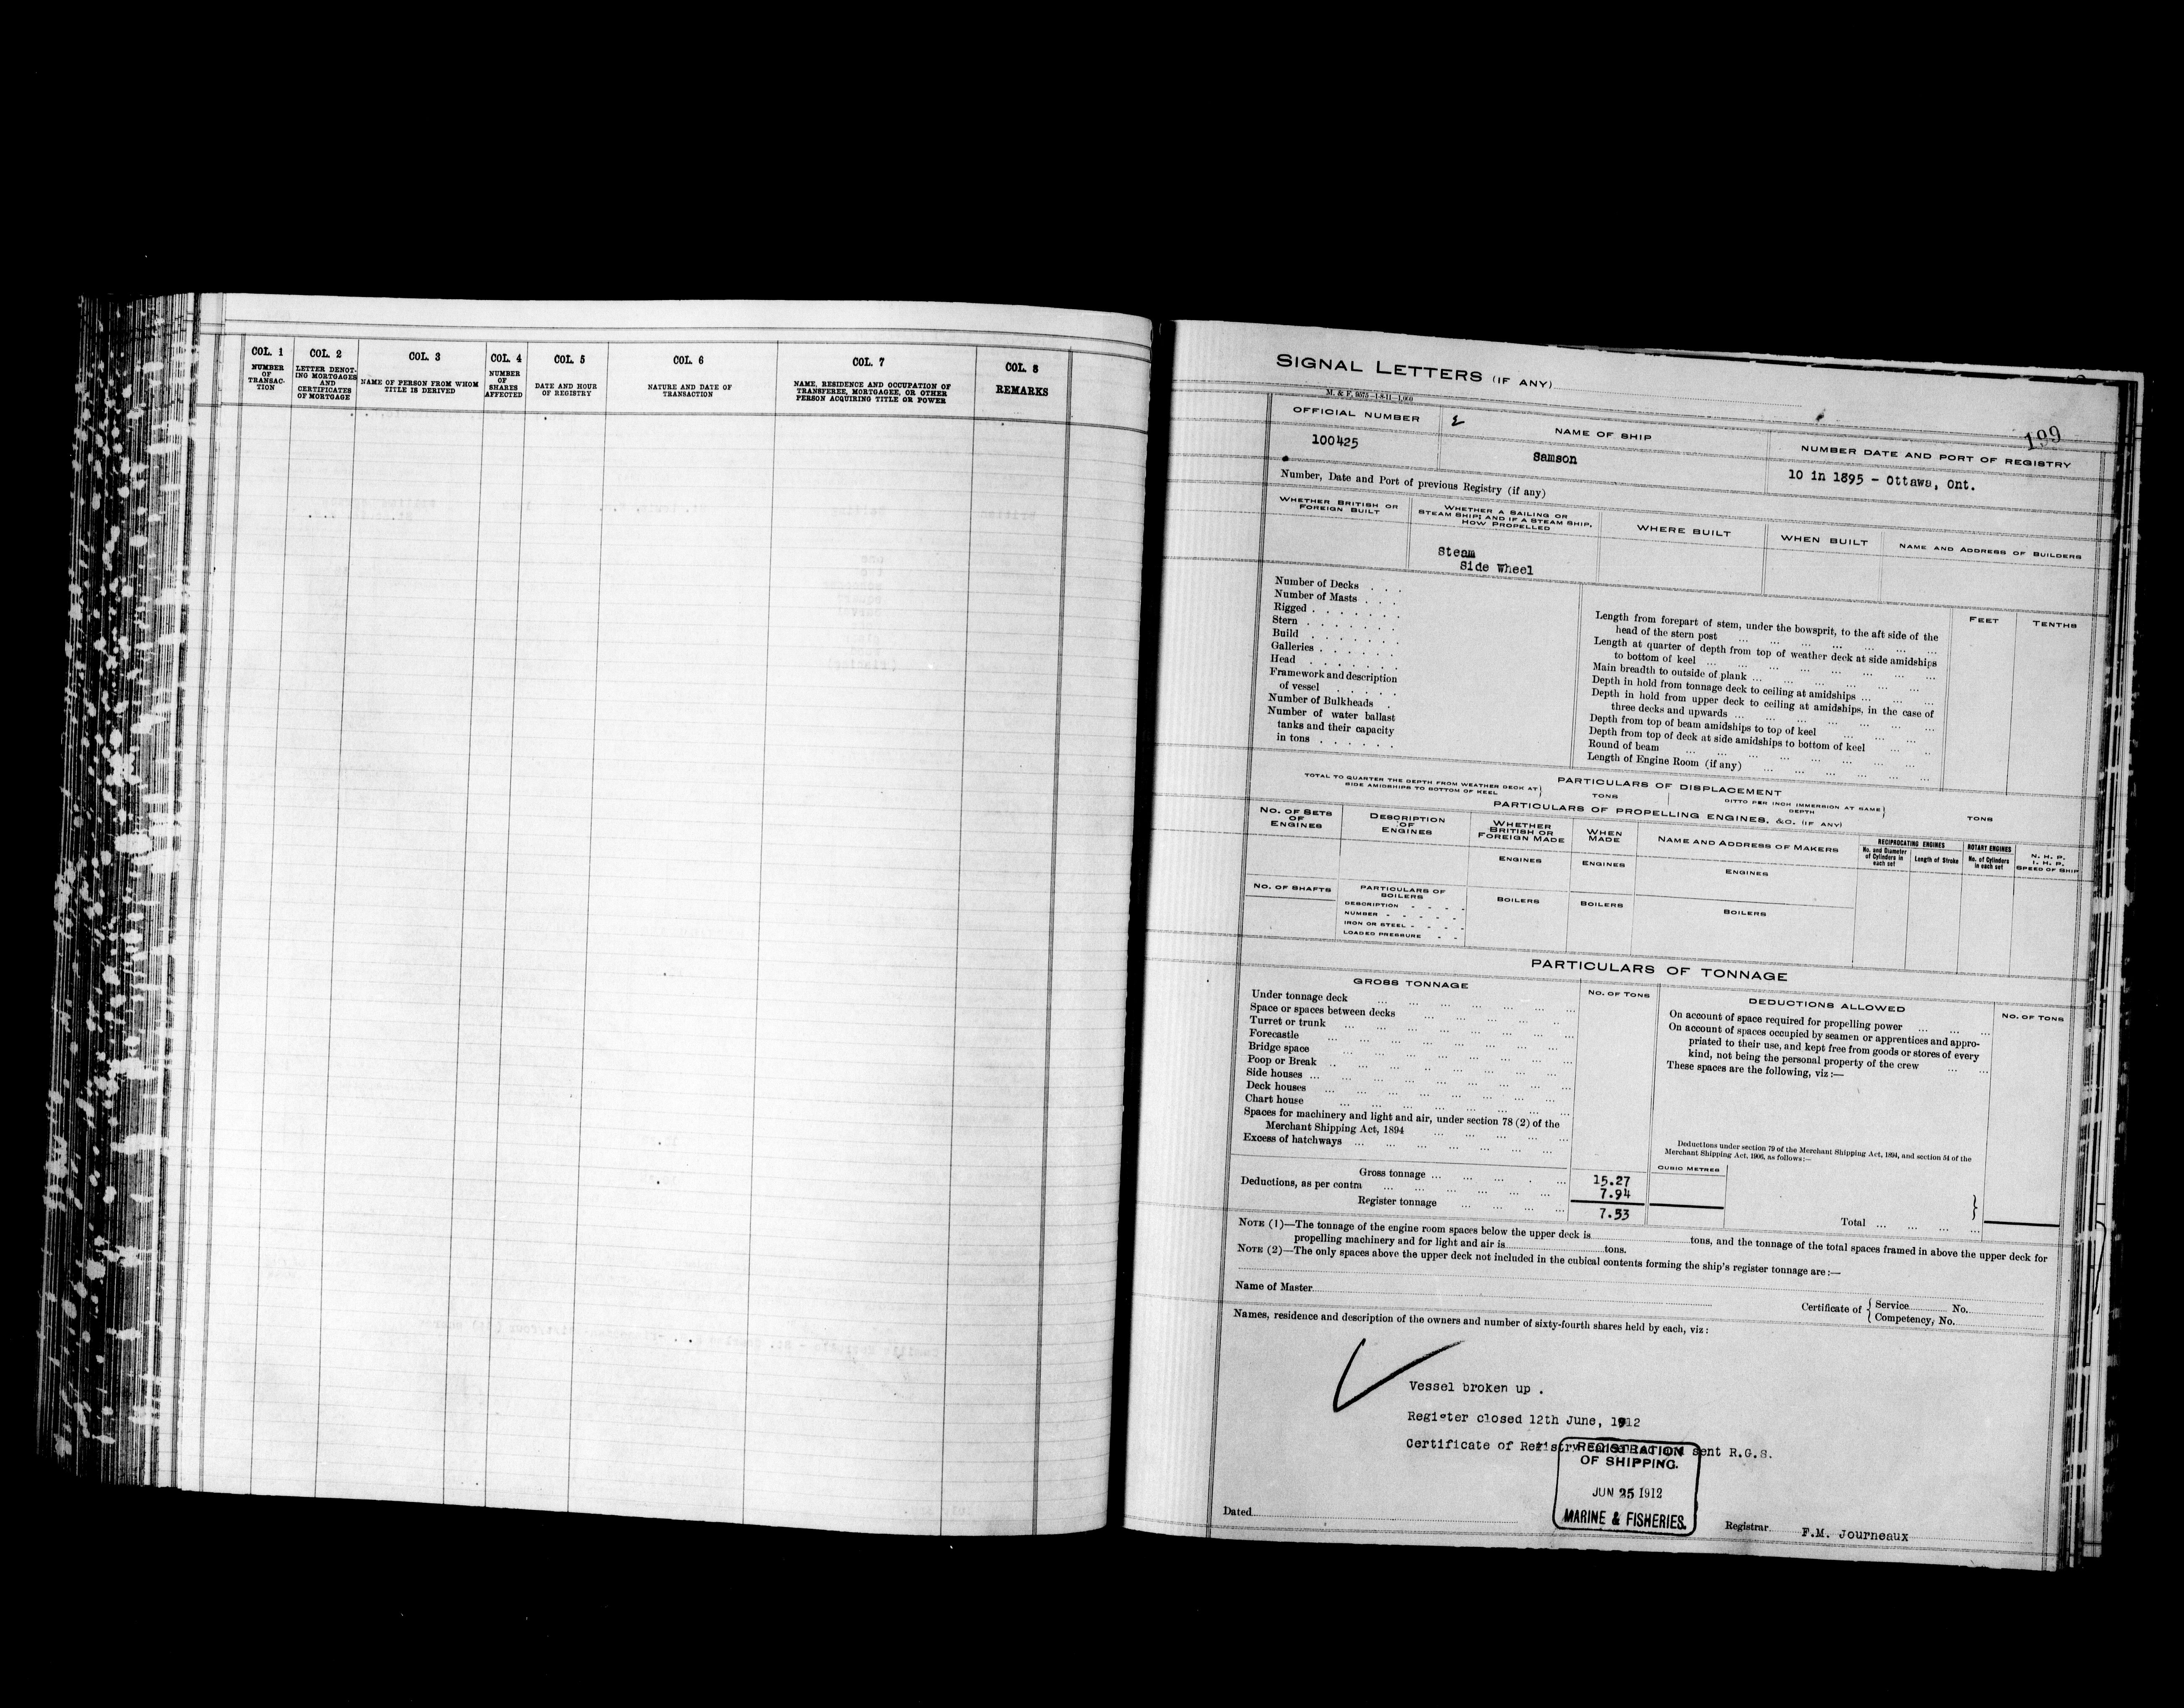 COL. 1
NUMBER
OF
TRANSAC-
TION
COL. 2
LETTER DENOT-
ING MORTGAGES
AND
CERTIFICATES
OF MORTGAGE
COL. 3
NAME OF PERSON FROM WHOM
TITLE IS DERIVED
COL. 4
NUMBER
OF
SHARES
AFFECTED
COL. 5
DATE AND HOUR
OF REGISTRY
COL. 6
NATURE AND DATE OF
TRANSACTION
COL. 7
NAME, RESIDENCE AND OCCUPATION OF
TRANSFEREE, MORTGAGEE, OR OTHER
PERSON ACQUIRING TITLE OR POWER
COL. 8
REMARKS
SIGNAL LETTERS (IF ANY)
M. & F. 9575—1-8-11—1,000
199
OFFICIAL NUMBER
100425
2
NAME OF SHIP
Samson
NUMBER DATE AND PORT OF REGISTRY
10 in 1895 - Ottawa, Ont.
Number, Date and Port of previous Registry (if any)
WHETHER BRITISH OR
FOREIGN BUILT
WHETHER A SAILING OR
STEAM SHIP; AND IF A STEAM SHIP,
HOW PROPELLED
Steam
Side Wheel
WHERE BUILT
WHEN BUILT
NAME AND ADDRESS OF BUILDERS
Number of Decks . . .
Number of Masts . . .
Rigged . . . . . . .
Stern . . . . . . .
Build . . . . . . .
Galleries . . . . . .
Head . . . . . . .
Framework and description
of vessel . . . . .
Number of Bulkheads .
Number of water ballast
tanks and their capacity
in tons . . . . . .
FEET
TENTHS
Length from forepart of stem, under the bowsprit, to the aft side of the
head of the stern post
Length at quarter of depth from top of weather deck at side amidships
to bottom of keel
Main breadth to outside of plank
Depth in hold from tonnage deck to ceiling at amidships
Depth in hold from upper deck to ceiling at amidships, in the case of
three decks and upwards
Depth from top of beam amidships to top of keel
Depth from top of deck at side amidships to bottom of keel
Round of beam
Length of Engine Room (if any)
PARTICULARS OF DISPLACEMENT
TOTAL TO QUARTER THE DEPTH FROM WEATHER DECK AT
SIDE AMIDSHIPS TO BOTTOM OF KEEL
TONS
DITTO PER INCH IMMERSION AT SAME
DEPTH
TONS
PARTICULARS OF PROPELLING ENGINES, &C. (IF ANY)
NO. OF SETS
OF
ENGINES
DESCRIPTION
OF
ENGINES
WHETHER
BRITISH OR
FOREIGN MADE
WHEN
MADE
NAME AND ADDRESS OF MAKERS
RECIPROCATING ENGINES
No. and Diameter
of Cylinders in
each set
Length of Stroke
ROTARY ENGINES
No. of Cylinders
in each set
N. H. P.
I. H. P.
SPEED OF SHIP
ENGINES
ENGINES
ENGINES
NO. OF SHAFTS
PARTICULARS OF
BOILERS
DESCRIPTION - - - -
NUMBER - - - - -
IRON OR STEEL - - - -
LOADED PRESSURE - -
BOILERS
BOILERS
BOILERS
PARTICULARS OF TONNAGE
GROSS TONNAGE
NO. OF TONS
Under tonnage deck
Space or spaces between decks
Turret or trunk
Forecastle
Bridge space
Poop or Break
Side houses
Deck houses
Chart house
Spaces for machinery and light and air, under section 78 (2) of the
Merchant Shipping Act, 1894
Excess of hatchways
Gross tonnage 15.27
Deductions, as per contra 7.94
Register tonnage 7.53
DEDUCTIONS ALLOWED
NO. OF TONS
On account of space required for propelling power
On account of spaces occupied by seamen or apprentices and appro-
priated to their use, and kept free from goods or stores of every
kind, not being the personal property of the crew
These spaces are the following, viz :—
Deductions under section 79 of the Merchant Shipping Act, 1894, and section 54 of the
Merchant Shipping Act, 1906, as follows:—
CUBIC METRES
Total
NOTE (1)—The tonnage of the engine room spaces below the upper deck is tons, and the tonnage of the total spaces framed in above the upper deck for
propelling machinery and for light and air is tons.
NOTE (2)—The only spaces above the upper deck not included in the cubical contents forming the ship's register tonnage are :—
Name of Master
Certificate of { Service No.
{ Competency, No.
Names, residence and description of the owners and number of sixty-fourth shares held by each, viz :
Vessel broken up .
Register closed 12th June, 1912
Certificate of Registry sent R.G.S.
REGISTRATION
OF SHIPPING.
JUN 25 1912
MARINE & FISHERIES.
Dated
Registrar F.M. Journeaux